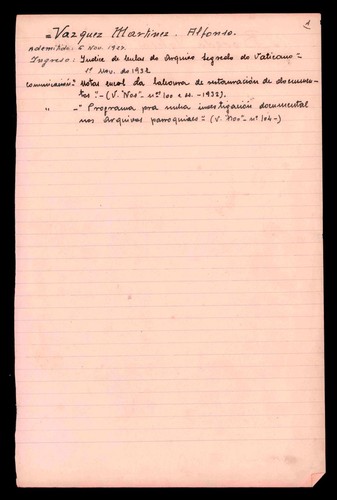 = Vazquez Martinez. Alfonso.
Ademitido: 5 Nov. 1927.
Ingreso: Indice de bulas do Arquivo Segredo do Vaticano =
1º Nov. do 1932
comunicación: Notas encol da laboura de restauración de documen-
tos" - (V. "Nos" - nº 100 e s. - 1932).
" - "Programa pra unha investigación documental
nos arquivos parroquiaes" = (V. Nos - nº 104 -)